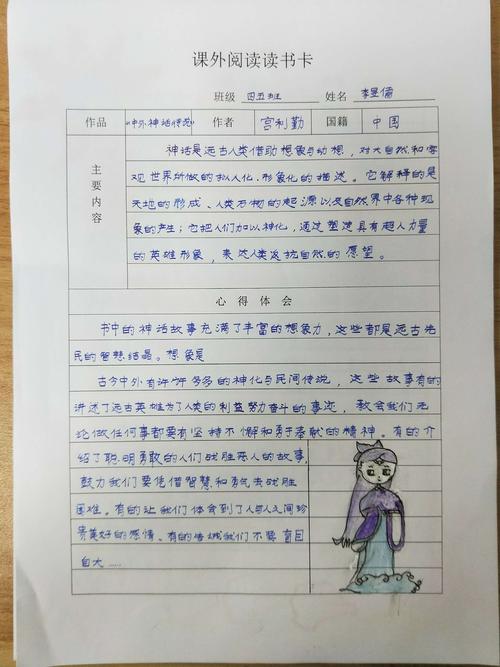 课外阅读读书卡
班级 四五班 姓名 李昱儒
作品 《中外神话传说》 作者 宫利勤 国籍 中国
主要内容
神话是远古人类借助想象与幻想，对大自然和客
观世界所做的拟人化.形象化的描述。它解释的是
天地的形成、人类万物的起源以及自然界中各种现
象的产生；它把人们加以神化，通过塑造具有超人力量
的英雄形象，表达人类反抗自然的愿望。
心得体会
书中的神话故事充满了丰富的想象力，这些都是远古先
民的智慧结晶。想象是
古今中外有许许多多的神化与民间传说，这些故事有的
讲述了远古英雄为了人类的利益努力奋斗的事迹，教会我们无
论做任何事都要有坚持不懈和勇于奉献的精神。有的介
绍了聪明勇敢的人们战胜恶人的故事，
鼓力我们要凭借智慧和勇气去战胜
困难。有的让我们体会到了人与人之间珍
贵美好的感情。有的告诫我们不要盲目
自大……